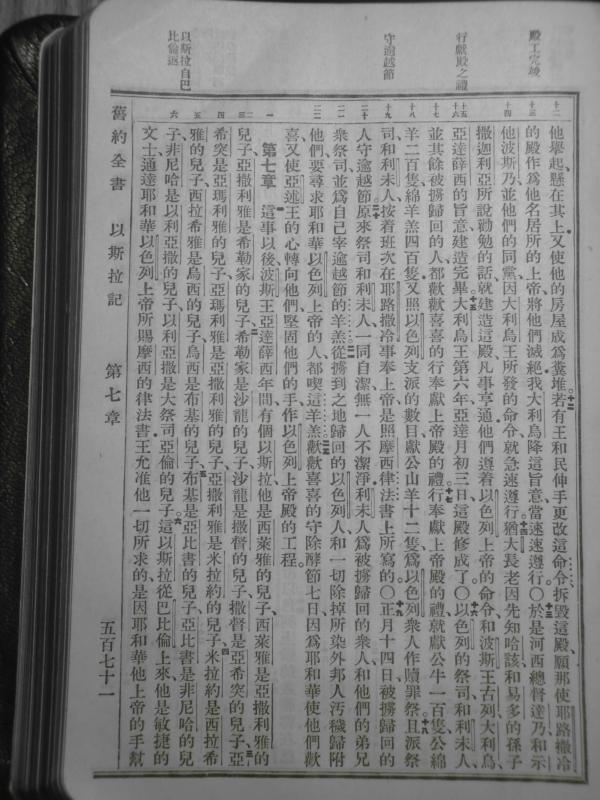 殿工完竣
行獻殿之禮
守逾越節
以斯拉自巴
比倫返
他舉起懸在其上又使他的房屋成爲糞堆若有王和民伸手更改這命令拆毀這殿願那使耶路撒冷
的殿作爲他名居所的上帝將他們滅絕我大利烏降這旨意當速速遵行〇於是河西總督達乃和示
他波斯乃並他們的同黨因大利烏王所發的命令就急速遵行猶大長老因先知哈該和易多的孫子
撒迦利亞所說勸勉的話就建造這殿凡事亨通他們遵着以色列上帝的命令和波斯王古列大利烏
亞達薛西的旨意建造完畢大利烏王第六年亞達月初三日這殿修成了〇以色列的祭司和利未人
並其餘被擄歸回的人都歡歡喜喜的行奉獻上帝殿的禮行奉獻上帝殿的禮就獻公牛一百隻公綿
羊二百隻綿羊羔四百隻又照以色列支派的數目獻公山羊十二隻爲以色列衆人作贖罪祭且派祭
司和利未人按着班次在耶路撒冷事奉上帝是照摩西律法書上所寫的〇正月十四日被擄歸回的
人守逾越節原來祭司和利未人一同自潔無一人不潔淨利未人爲被擄歸回的衆人和他們的弟兄
衆祭司並爲自己宰逾越節的羊羔從擄到之地歸回的以色列人和一切除掉所染外邦人汚穢歸附
他們要尋求耶和華以色列上帝的人都喫這羊羔歡歡喜喜的守除酵節七日因爲耶和華使他們歡
喜又使亞述王的心轉向他們堅固他們的手作以色列上帝殿的工程
第七章 這事以後波斯王亞達薛西年間有個以斯拉他是西萊雅的兒子西萊雅是亞撒利雅的
兒子亞撒利雅是希勒家的兒子希勒家是沙龍的兒子沙龍是撒督的兒子撒督是亞希突的兒子亞
希突是亞瑪利雅的兒子亞瑪利雅是亞撒利雅的兒子亞撒利雅是米拉約的兒子米拉約是西拉希
雅的兒子西拉希雅是烏西的兒子烏西是布基的兒子布基是亞比書的兒子亞比書是非尼哈的兒
子非尼哈是以利亞撒的兒子以利亞撒是大祭司亞倫的兒子這以斯拉從巴比倫上來他是敏捷的
文士通達耶和華以色列上帝所賜摩西的律法書王允准他一切所求的是因耶和華他上帝的手幫
舊約全書 以斯拉記 第七章 五百七十一